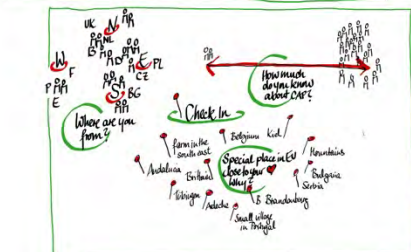 UK
N
NL
W
F
E
PL
CZ
P
E
S
BG
Where are you
from?
How much
do you know
about CAP?
Check In
farm in the
south east
Belgium
Kiel
Mountains
Andalucia
Brittany
Special place in EU
close to your
Why?
Bulgaria
Serbia
Tübingen
Ardeche
B
Brandenburg
Small village
in Portugal